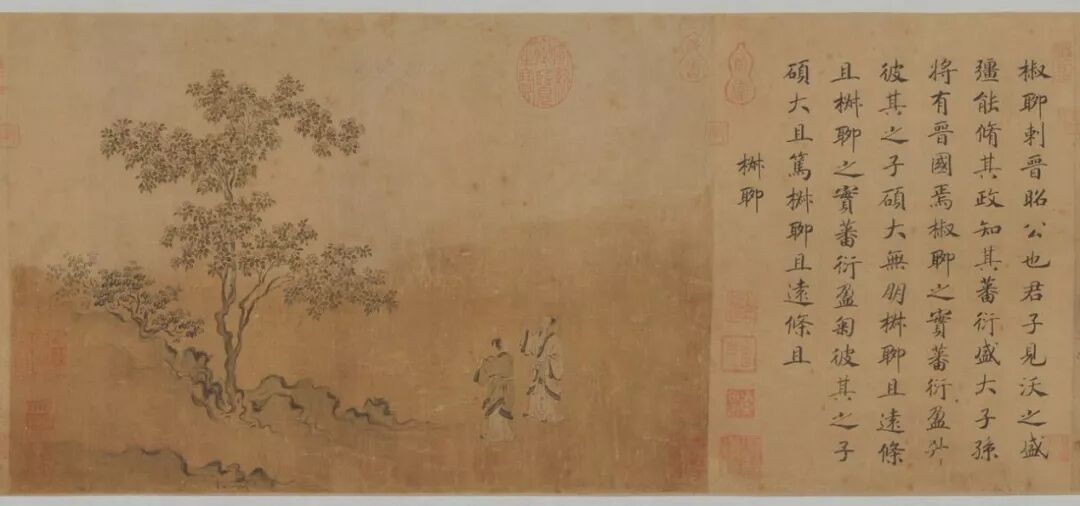 椒聊刺晉昭公也君子見沃之盛
彊能脩其政知其蕃衍盛大子孫
將有晉國焉椒聊之實蕃衍盈升
彼其之子碩大無朋椒聊且遠條
且椒聊之實蕃衍盈匊彼其之子
碩大且篤椒聊且遠條且
椒聊